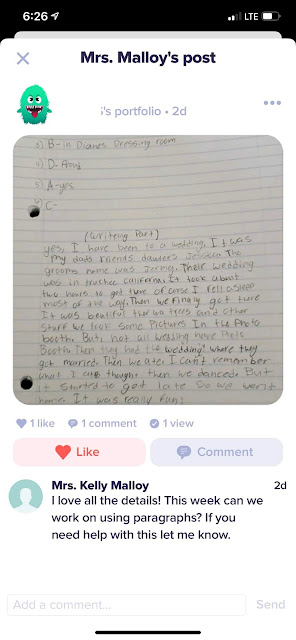 6:26
LTE
Mrs. Malloy's post
's portfolio • 2d
3) B-in Dianes Dressing room
4) D-
5) A-yes
6) C-
(Writeing Part)
yes, I have been to a wedding, It was
my dads friends dauders Jessica. The
grooms name was Jering. Their wedding
was in California. It took about
two hours to get there of corse I fell asleep
most of the way. Then we finally got
It was beutiful trees and other
stuff we took some Pictures In the Photo
booth. But, not all wedding have Photo
Booth. Then they had the wedding! where they
got married. Then we ate, I can't remember
what I ate thought, then we danced. But
it started to get late So we went
home. It was really fun!
1 like 1 comment 1 view
Like Comment
Mrs. Kelly Malloy 2d
I love all the details! This week can we
work on using paragraphs? If you
need help with this let me know.
Add a comment... Send